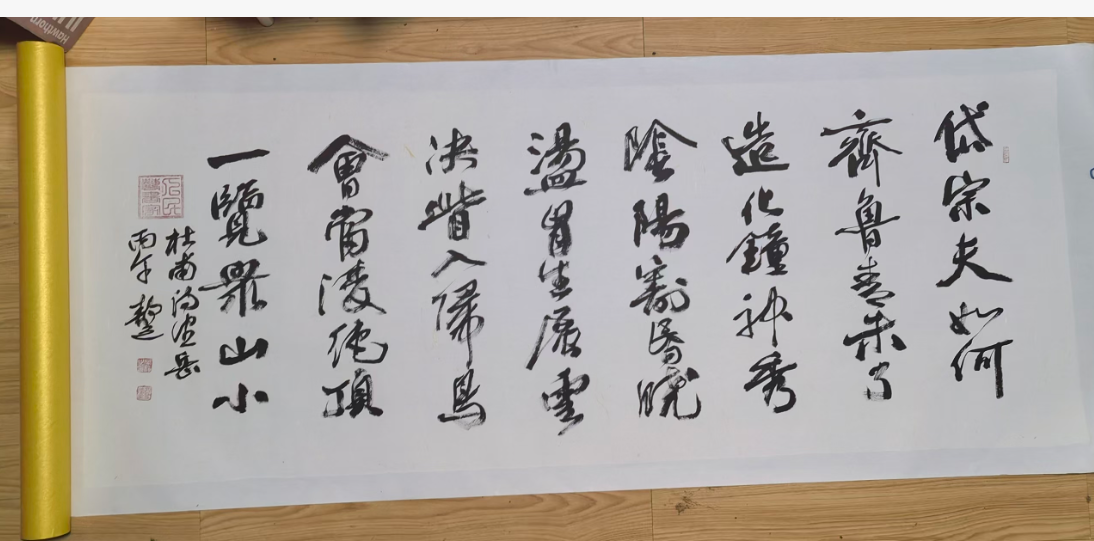 岱宗夫如何
齊魯青未了
造化鐘神秀
陰陽割昏曉
盪胷生層雲
決眥入歸鳥
會當淩絕頂
一覽眾山小
杜甫詩望岳
丙午
Hawthorn